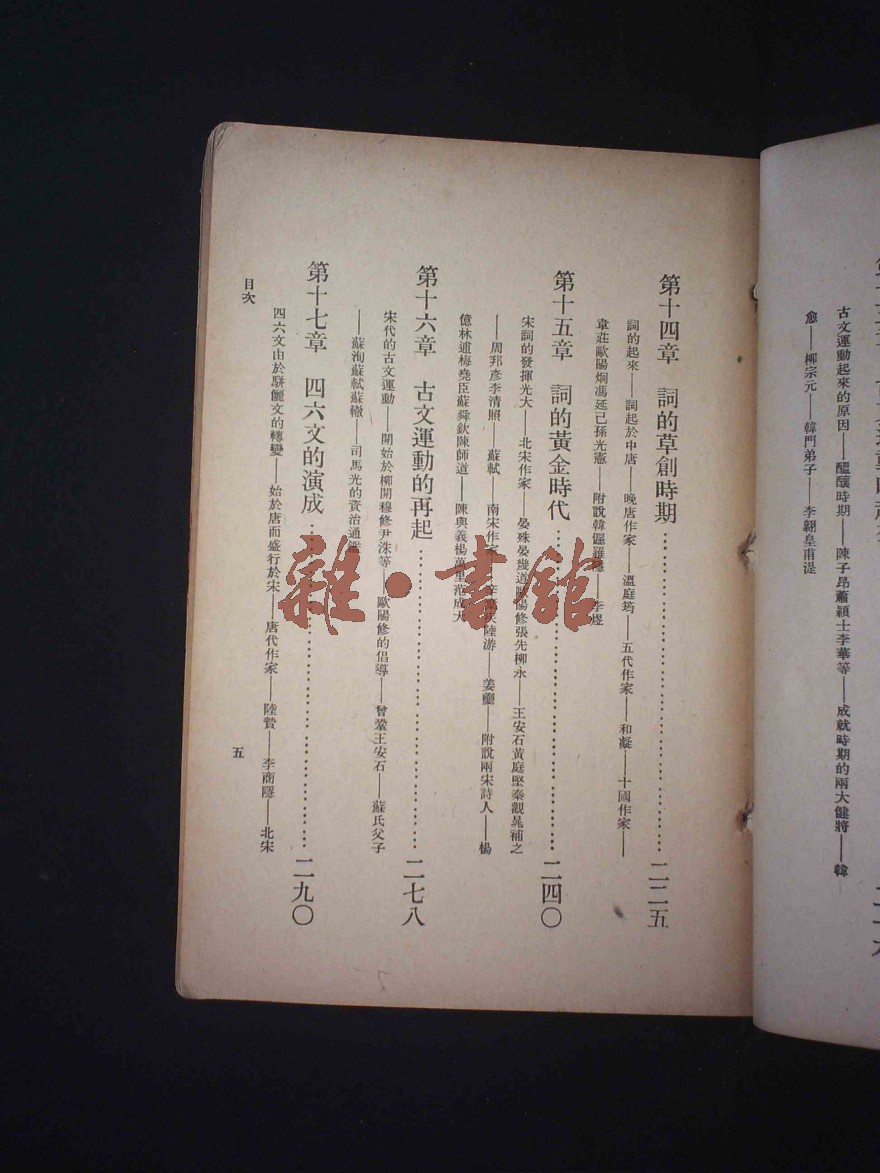 古文運動起來的原因——醞釀時期——陳子昂蕭穎士李華等——成就時期的兩大健將——韓
愈——柳宗元——韓門弟子——李翱皇甫湜
第十四章　詞的草創時期……二二五
詞的起來——詞起於中唐——晚唐作家——溫庭筠——五代作家——和凝——十國作家——
韋莊歐陽烱馮延己孫光憲——附說韓偓羅隱——李煜
第十五章　詞的黃金時代……二四〇
宋詞的發揮光大——北宋作家——晏殊晏幾道歐陽修張先柳永——王安石黃庭堅秦觀晁補之
——周邦彥李清照——蘇軾——南宋作家——辛棄疾陸游——姜夔——附說兩宋詩人——楊
億林逋梅堯臣蘇舜欽陳師道——陳與義楊萬里范成大
第十六章　古文運動的再起……二七八
宋代的古文運動——開始於柳開穆修尹洙等——歐陽修的倡導——曾鞏王安石——蘇氏父子
——蘇洵蘇軾蘇轍——司馬光的資治通鑑
第十七章　四六文的演成……二九〇
四六文由於駢儷文的轉變——始於唐而盛行於宋——唐代作家——陸贄——李商隱——北宋
目次
五
雜·書館